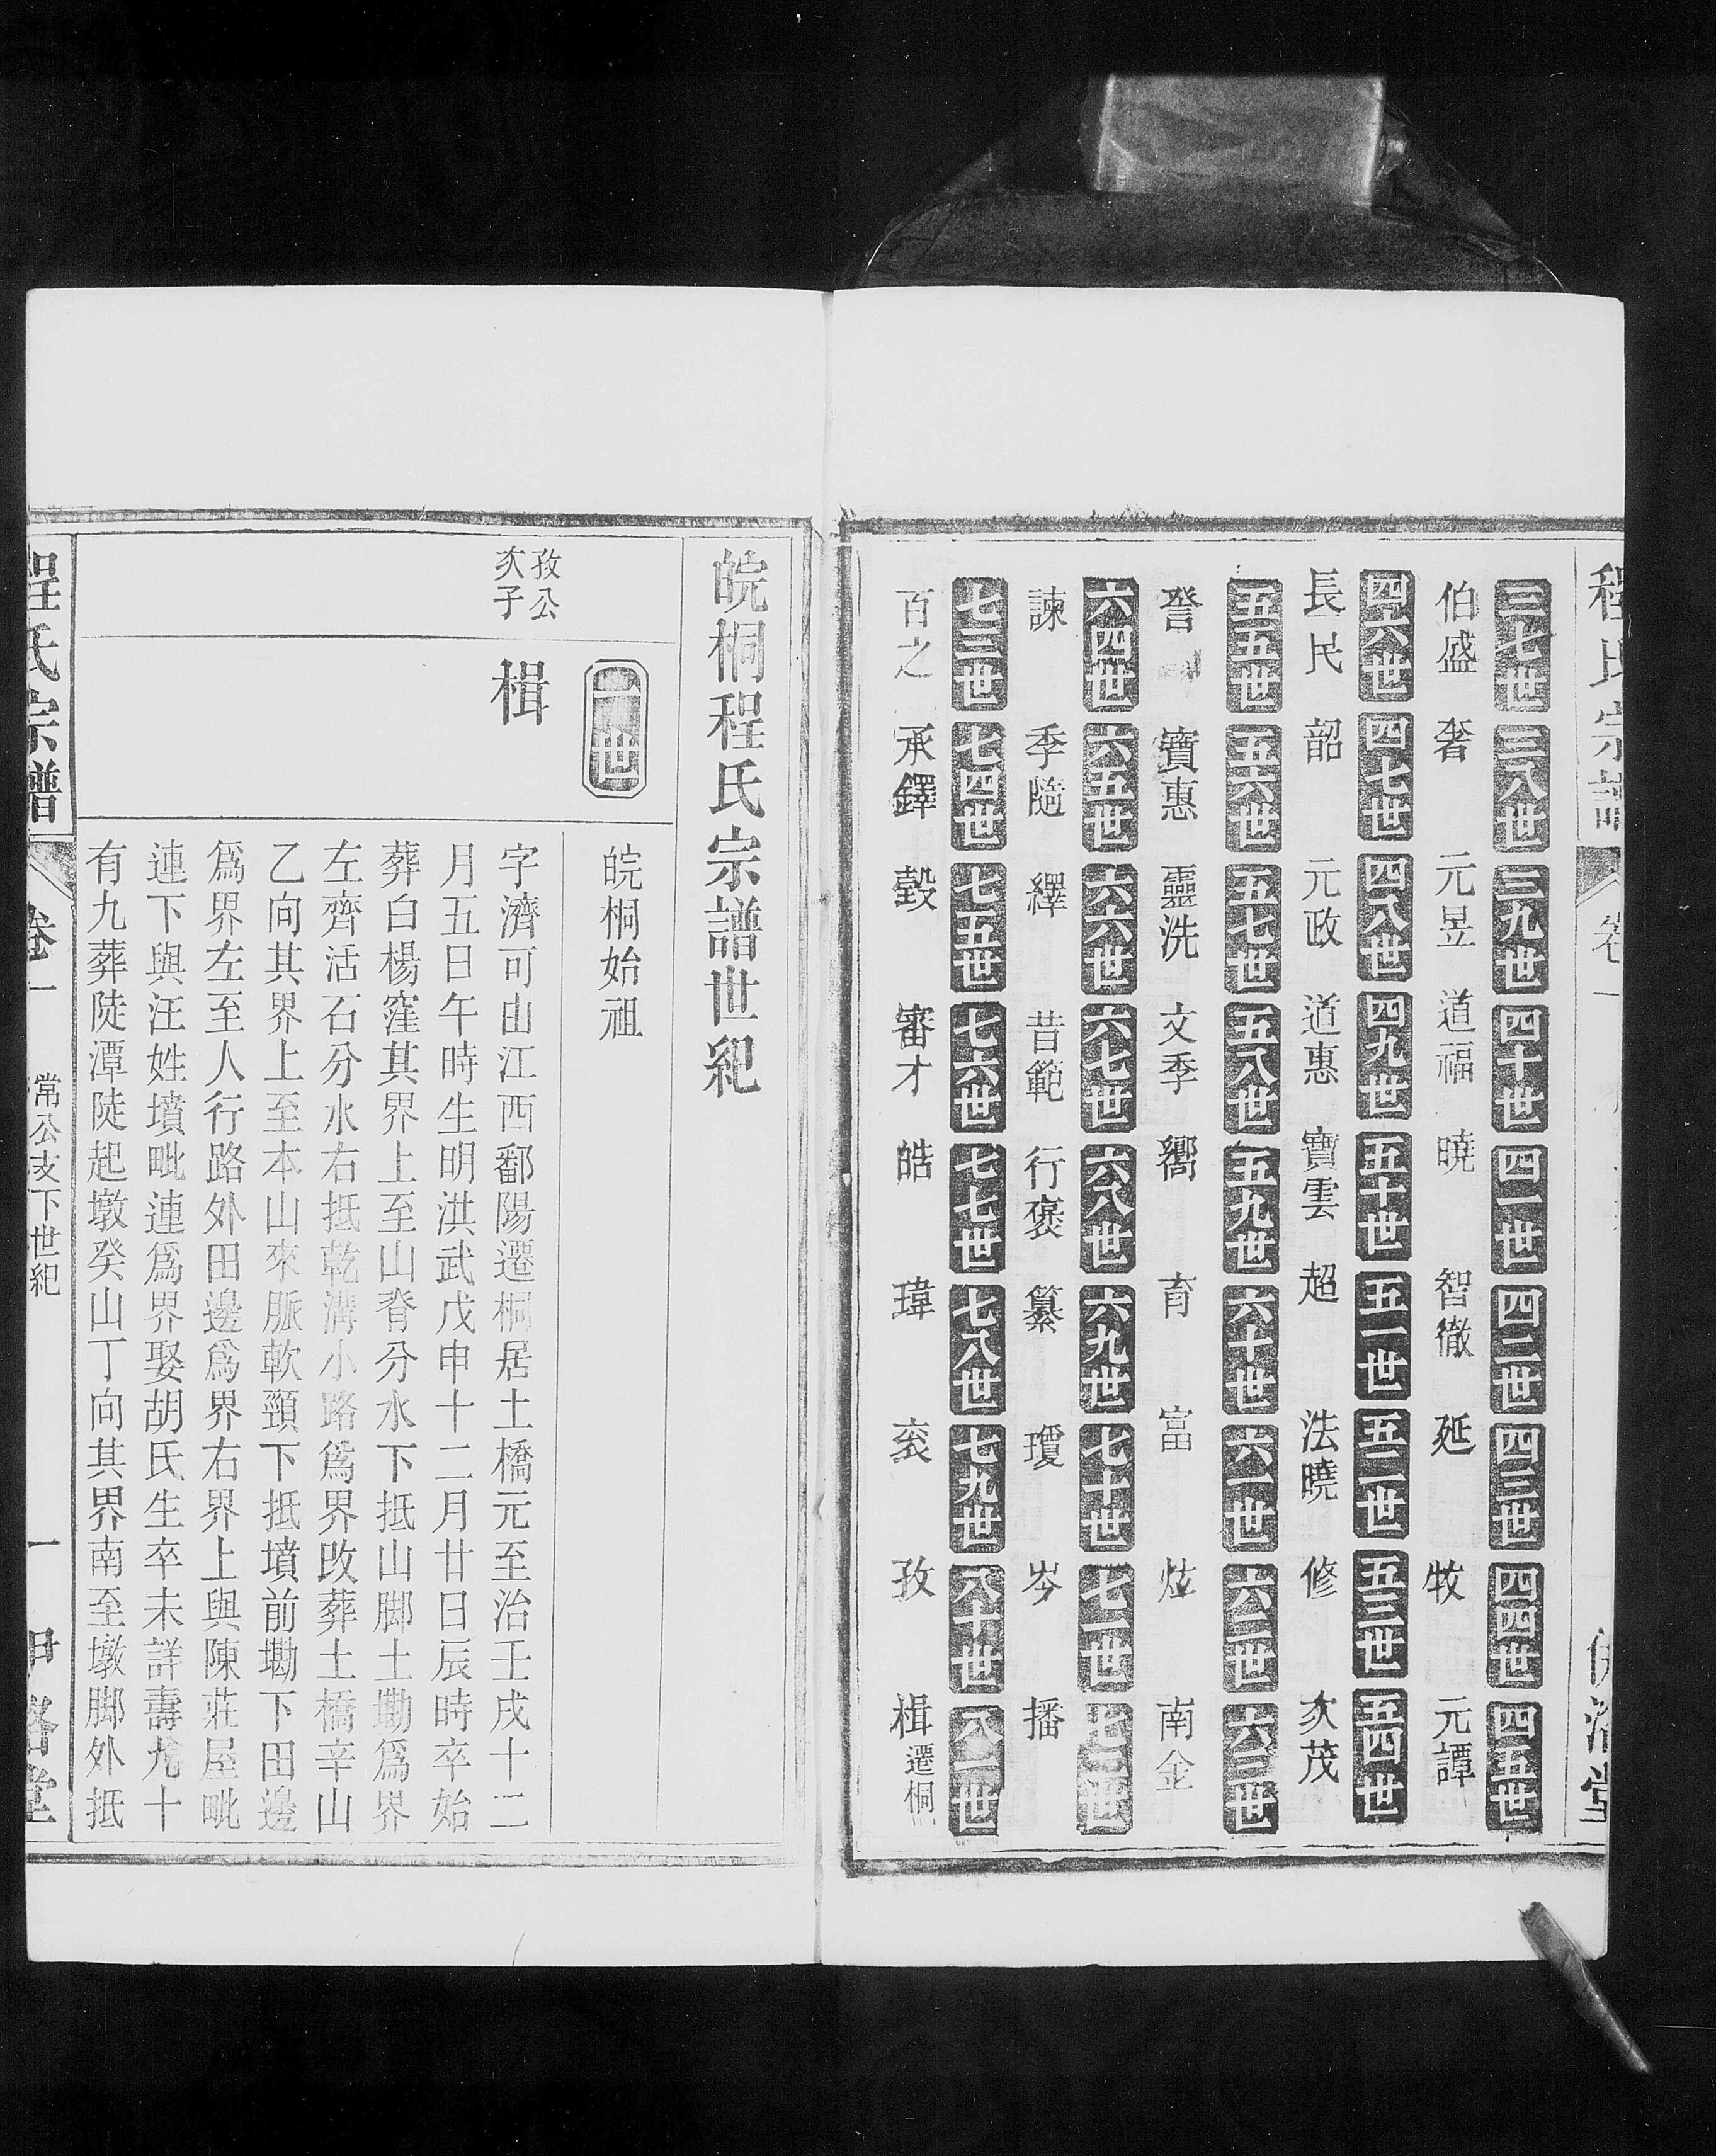 程氏宗譜 卷一 伊洛堂
三七世 三八世 三九世 四十世 四一世 四二世 四三世 四四世 四五世
伯盛 奢 元昱 道福 曉 智徹 延 牧 元譚
四六世 四七世 四八世 四九世 五十世 五一世 五二世 五三世 五四世
長民 韶 元政 道惠 寶雲 超 法曉 修 次茂
五五世 五六世 五七世 五八世 五九世 六十世 六一世 六二世 六三世
詧 寶惠 靈洗 文季 嚮 育 富 炫 南金
六四世 六五世 六六世 六七世 六八世 六九世 七十世 七一世 七二世
諫 季隨 繹 昔範 行褒 纂 瓊 岑 播
七三世 七四世 七五世 七六世 七七世 七八世 七九世 八十世 八一世
百之 承鐸 瑴 審才 皓 瑋 衮 孜 楫遷桐
皖桐程氏宗譜世紀
一世
皖桐始祖
孜公
次子
楫
字濟可山江西鄱陽遷桐居土橋元至治壬戌十二
月五日午時生明洪武戊申十二月廿日辰時卒始
葬白楊窪其界上至山脊分水下抵山脚土墈爲界
左齊活石分水右抵乾溝小路爲界改葬土橋辛山
乙向其界上至本山來脈軟頸下抵墳前墈下田邊
爲界左至人行路外田邊爲界右界上與陳莊屋毗
連下與汪姓墳毗連爲界娶胡氏生卒未詳壽尤十
有九葬陡潭陡起墩癸山丁向其界南至墩脚外抵
程氏宗譜 卷一 常公支下世紀 一 伊洛堂